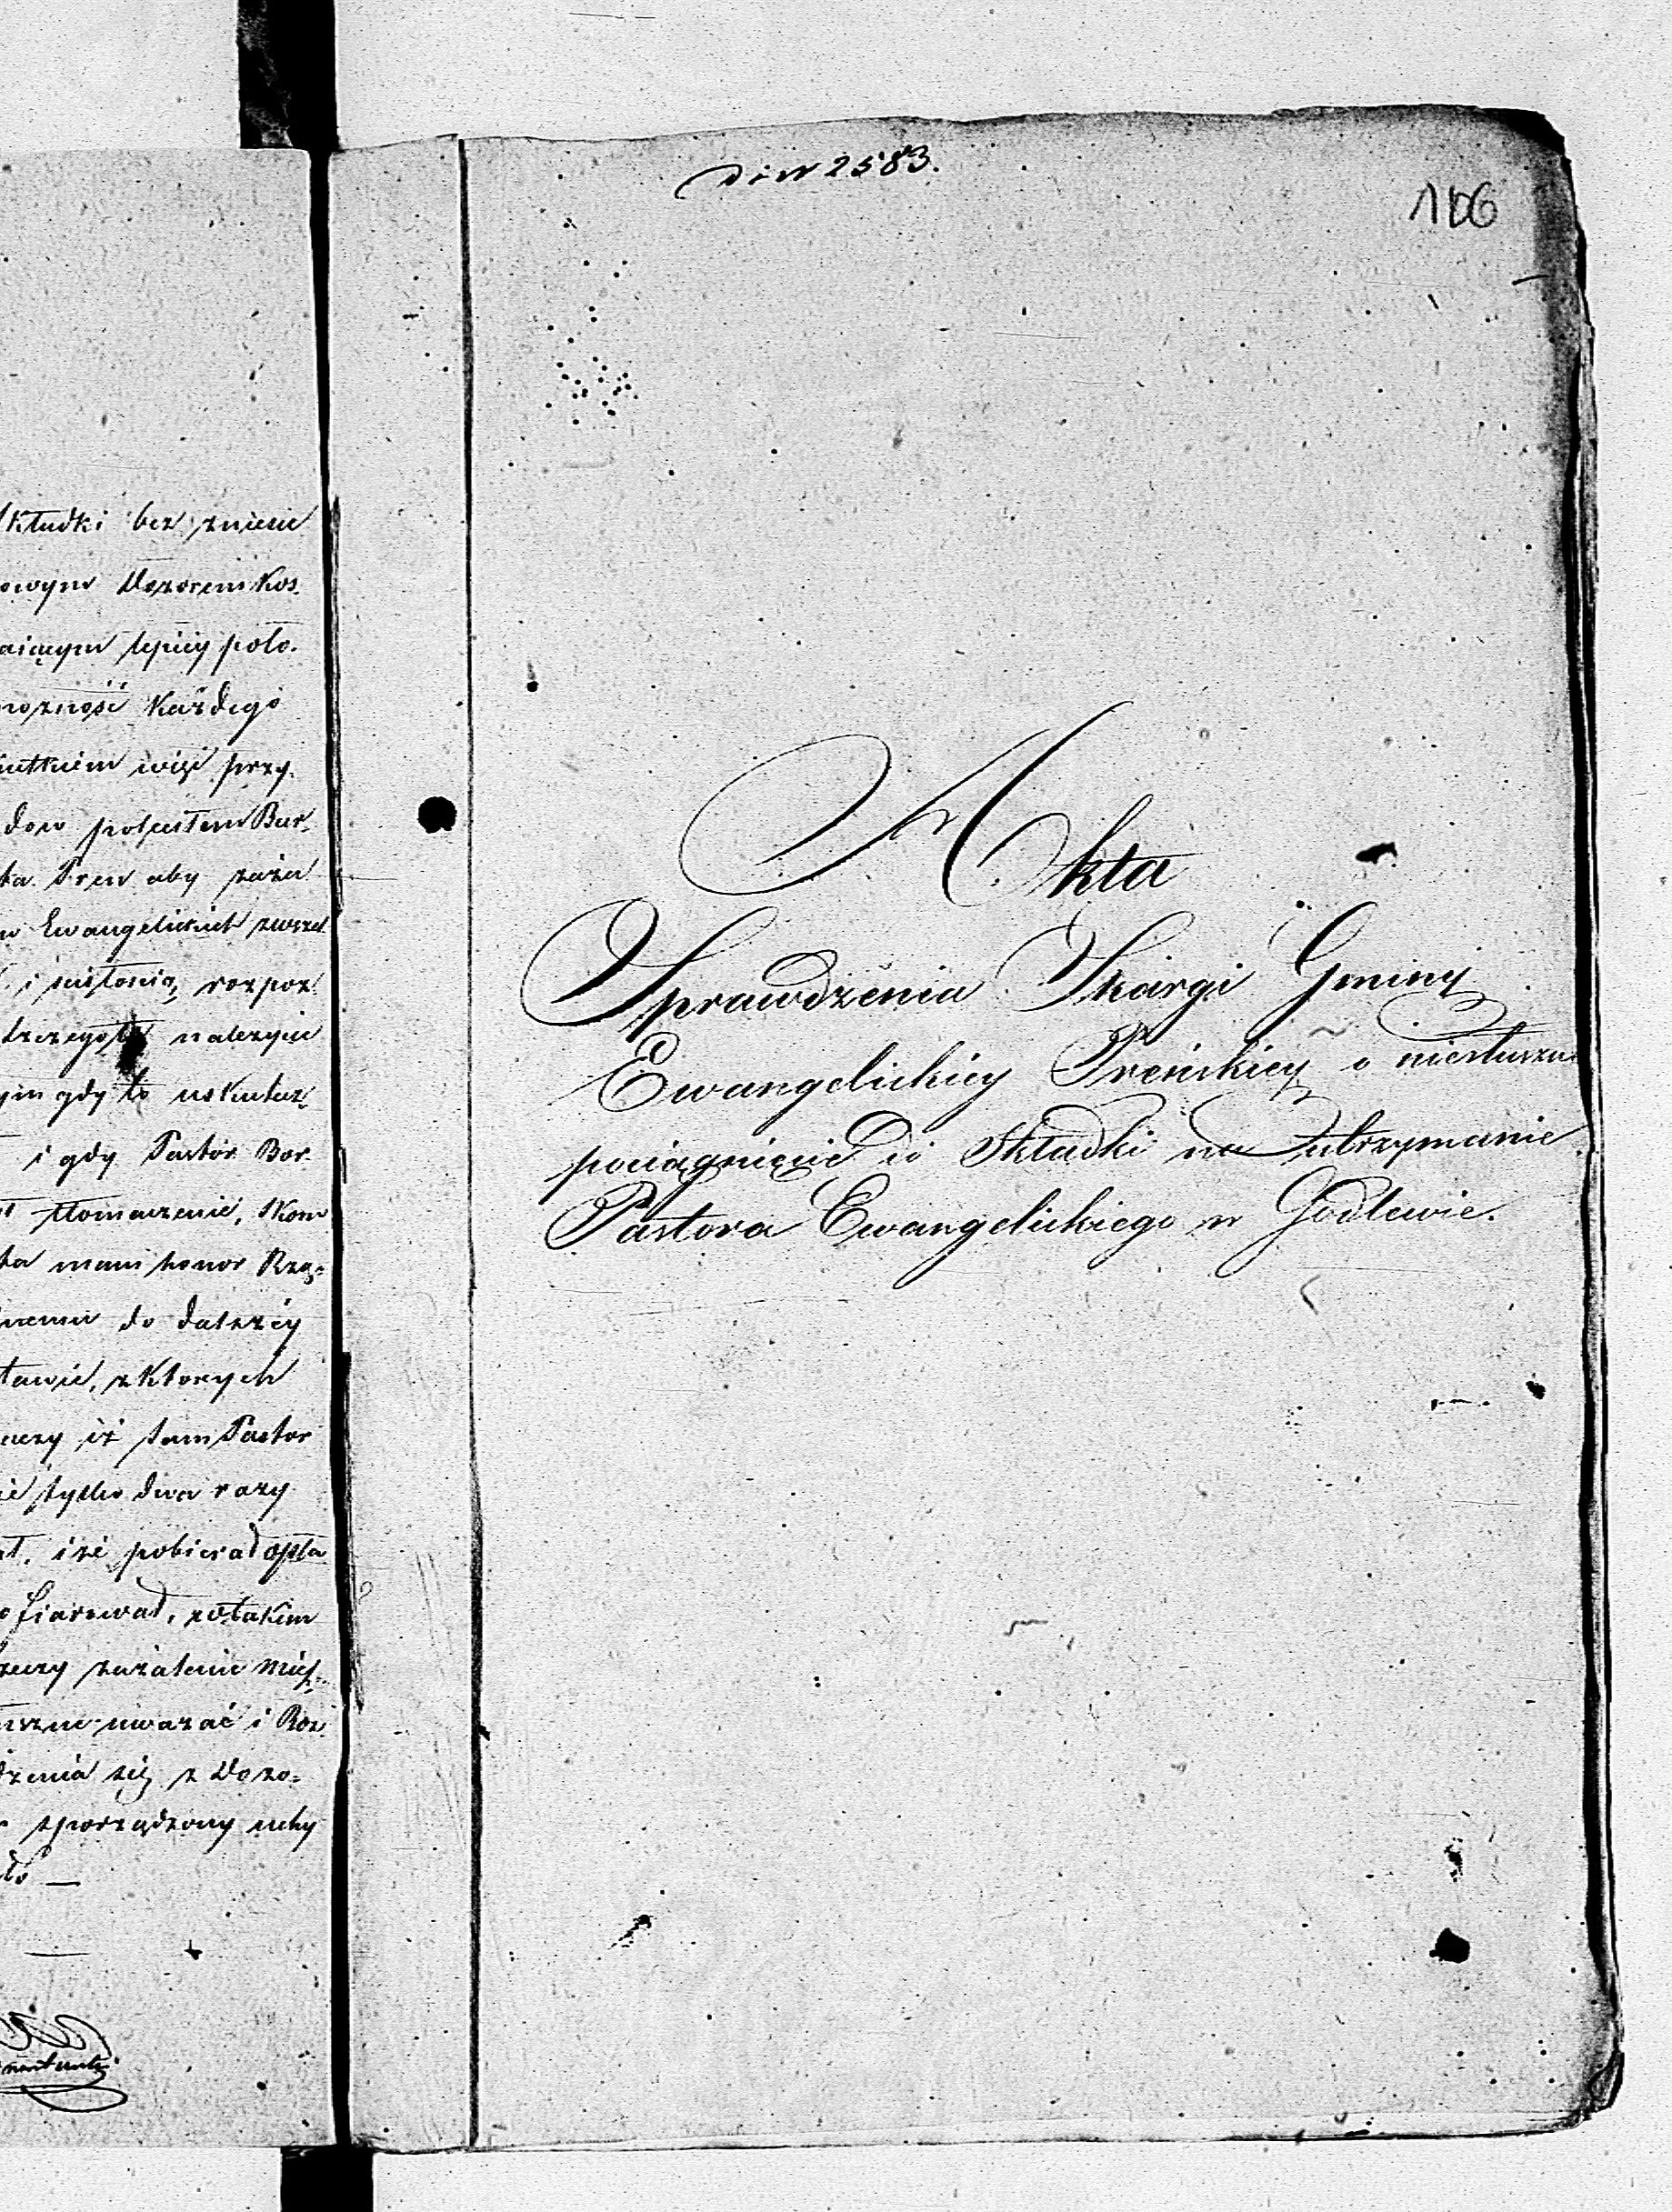 składki bez zniesie
owym Dozorem Kos
aiącym lepiey poło.
możność każdego
utkiem więc przy
dow poleciłem Bur.
ta Pren aby zaża
w Ewangelickich
i rozpoz
szczegoły należycie
ym gdy to uskutecz
i gdy Pastor Bor
tłomaczenie, Kom
ta mam honor Rzą=
nemu do dalszéy
tawie, z ktorych
aczy iż sam Pastor
ie tylko dwa razy
ał, i że pobierał opła
ofiarował, po takim
rzeczy zażalenie Mies
uszne uważać i Roz
dzenia się z Dozo=
sporządzony uchy
ło —
do N 2583.
106
Akta
Sprawdzenia Skargi Gminy
Ewangelickiey Preńskiey o niesłuszne
pociągnięcie do Składki na utrzymanie
Pastora Ewangelickiego w Godlewie.